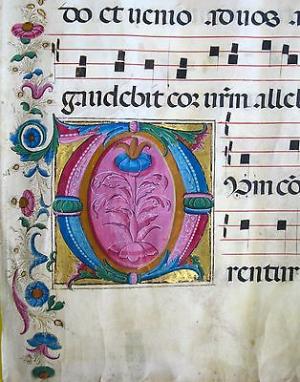 do et uenio ad uos a
gaudebit cor ur̄m alle
DUm cō
rentur